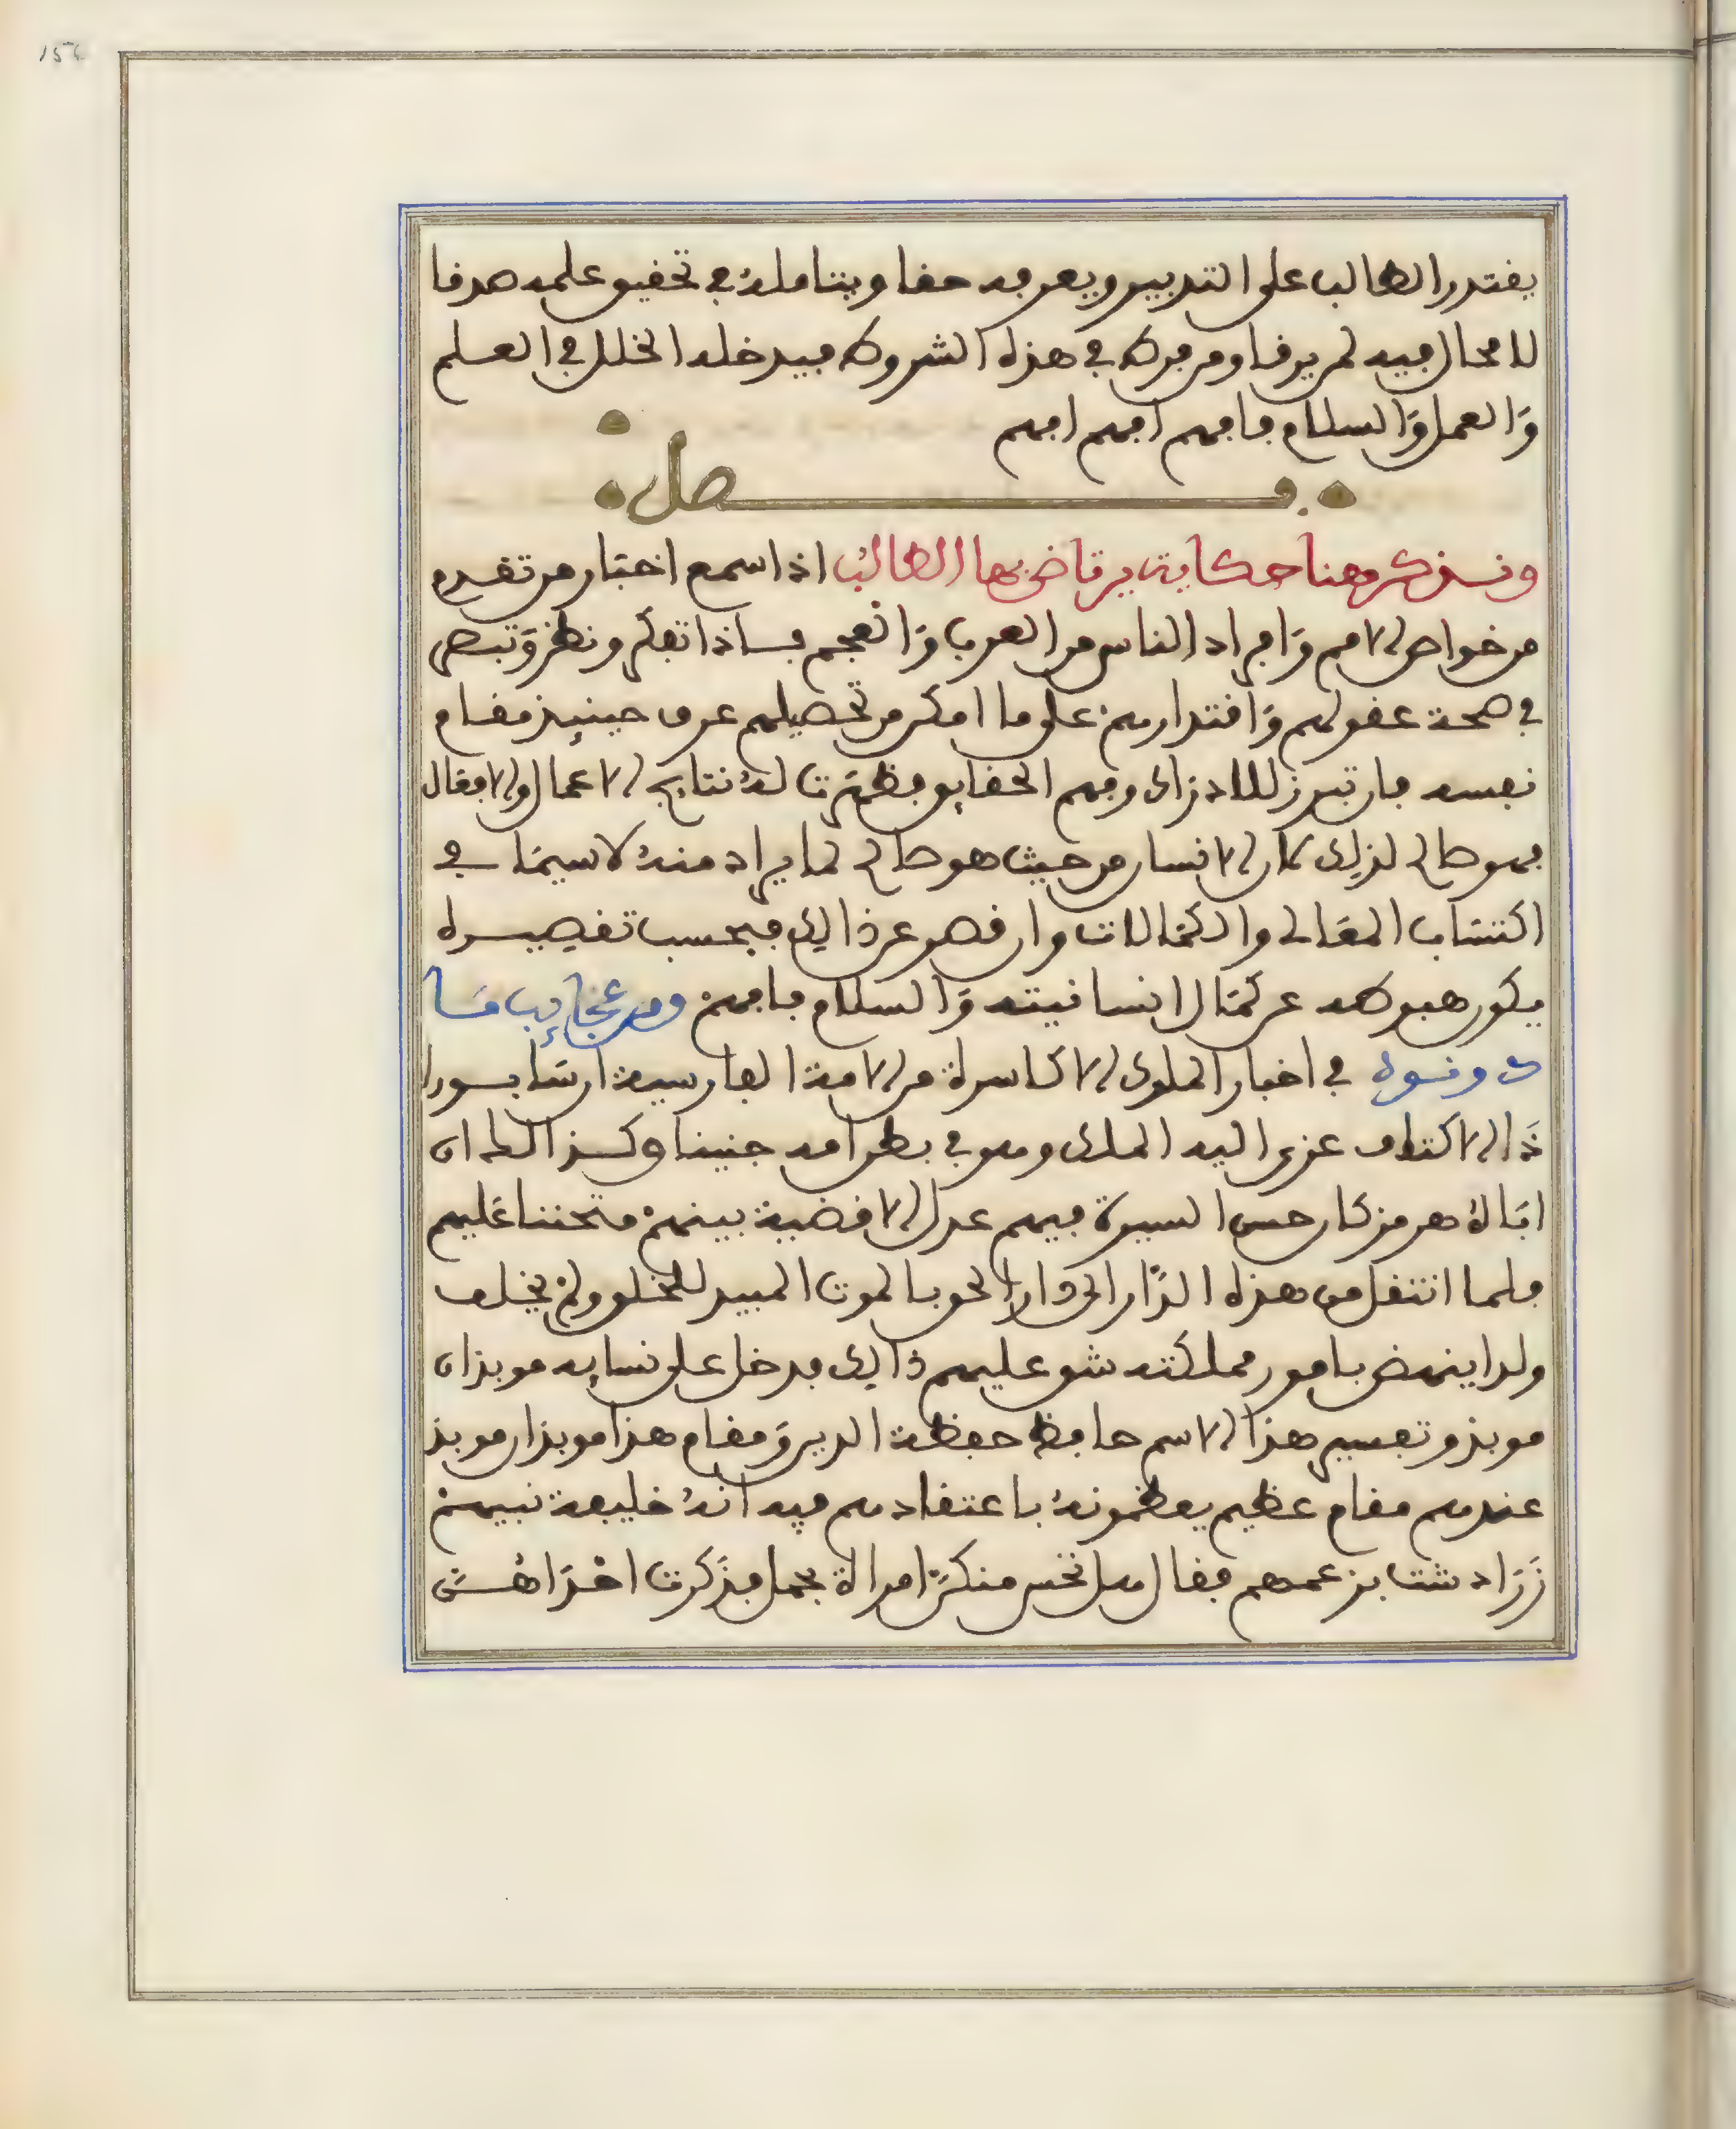 يقتدر الطالب على التدبير ويعرفه حقا ويتامله في تحقيق علمه صدقا
لا محال فيه لمريد فاومن فرط في هذه الشروط فيدخله الخلل في العلم
وَالعمل وَالسلام فافهم افهم افهم
فصل
ونذكر هنا حكاية يرتاض بها الطالب اذا سمع اخبار من تقدم
من خواص الامم وَافراد الناس من العرب وَالعجم فاذا تفكر ونظر وَتبصر
في صحة عقولهم وَاقتدارهم على ما امكن من تحصيلهم عرف حينيذ مقام
نفسه فان تبرز للادراك وفهم الحقايق فظهرَت له نتايج الاعمال والافعال
فهو صالح لذلك كمال الانسان من حيث هو صالح لما يراد منه لاسيما في
اكتسَاب المعَالي والكمَالات وان قصر عن ذالك فبحسب تقصيره
يكون هبوطه عن كمَال انسانيته وَالسلام فافهم ومن عجَايب مَا
دونوه في اخبار الملوك الاكاسرة من الامة الفارسية ان سَابور
ذَا الاكتاف عزي اليه الملك وهو في بطن امه جنينا وكذالك ان
ابَاه هرمز كان حسن السيرة فيهم عدل الاقضية بينهم متحننا عَليهم
فلما انتقل من هذه الدَّار الى دار الحق بالموت المبيد للخلق ولم يخلف
ولدا ينهض بامور مملكته شق عليهم ذالك فدخل على نسايه موبذان
موبذ وتفسير هذا الاسم حافظ حفظة الدين وَمقام هذا موبذان موبذ
عندهم مقام عظيم يعظمونه باعتقادهم فيه انه خليفة نبيهم
زَرَادشت بزعمهم فقال هل تحس منكنَّ امراة بحمل فذَكرت احْدَاهُنَّ